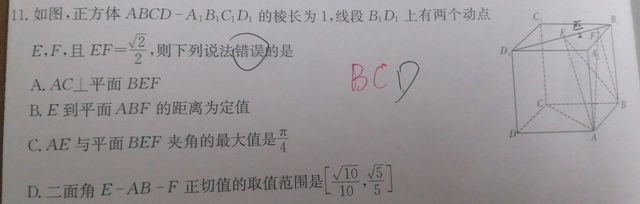 11. 如图,正方体 ABCD-A₁B₁C₁D₁ 的棱长为1,线段 B₁D₁ 上有两个动点
E,F,且 EF=√2/2,则下列说法错误的是
A. AC⊥平面 BEF
B. E 到平面 ABF 的距离为定值
C. AE 与平面 BEF 夹角的最大值是π/4
D. 二面角 E-AB-F 正切值的取值范围是[√10/10, √5/5]
BCD
C₁ B₁
E F
D₁ A₁
C B
D A